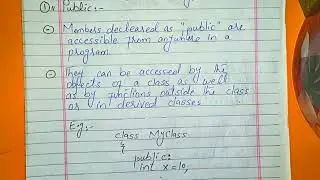 ① Public :-
⊝ Members decleared as "public" are
accessible from anywhere in a
program.
⊝ They can be accessed by the
objects of a class as well
as by functions outside the class
or in derived classes
E.g:-
class MyClass
{
public:
int x=10,